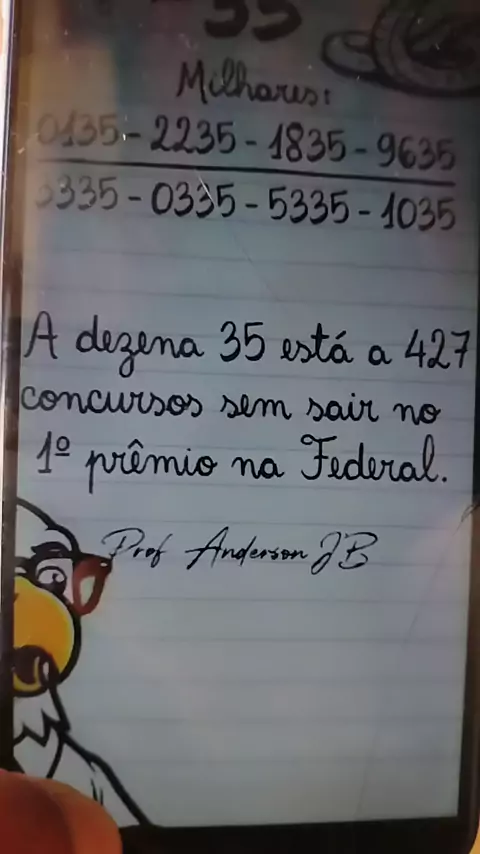 35
Milhares:
0135 - 2235 - 1835 - 9635
3335 - 0335 - 5335 - 1035
A dezena 35 está a 427
concursos sem sair no
1º prêmio na Federal.
Prof Anderson JB